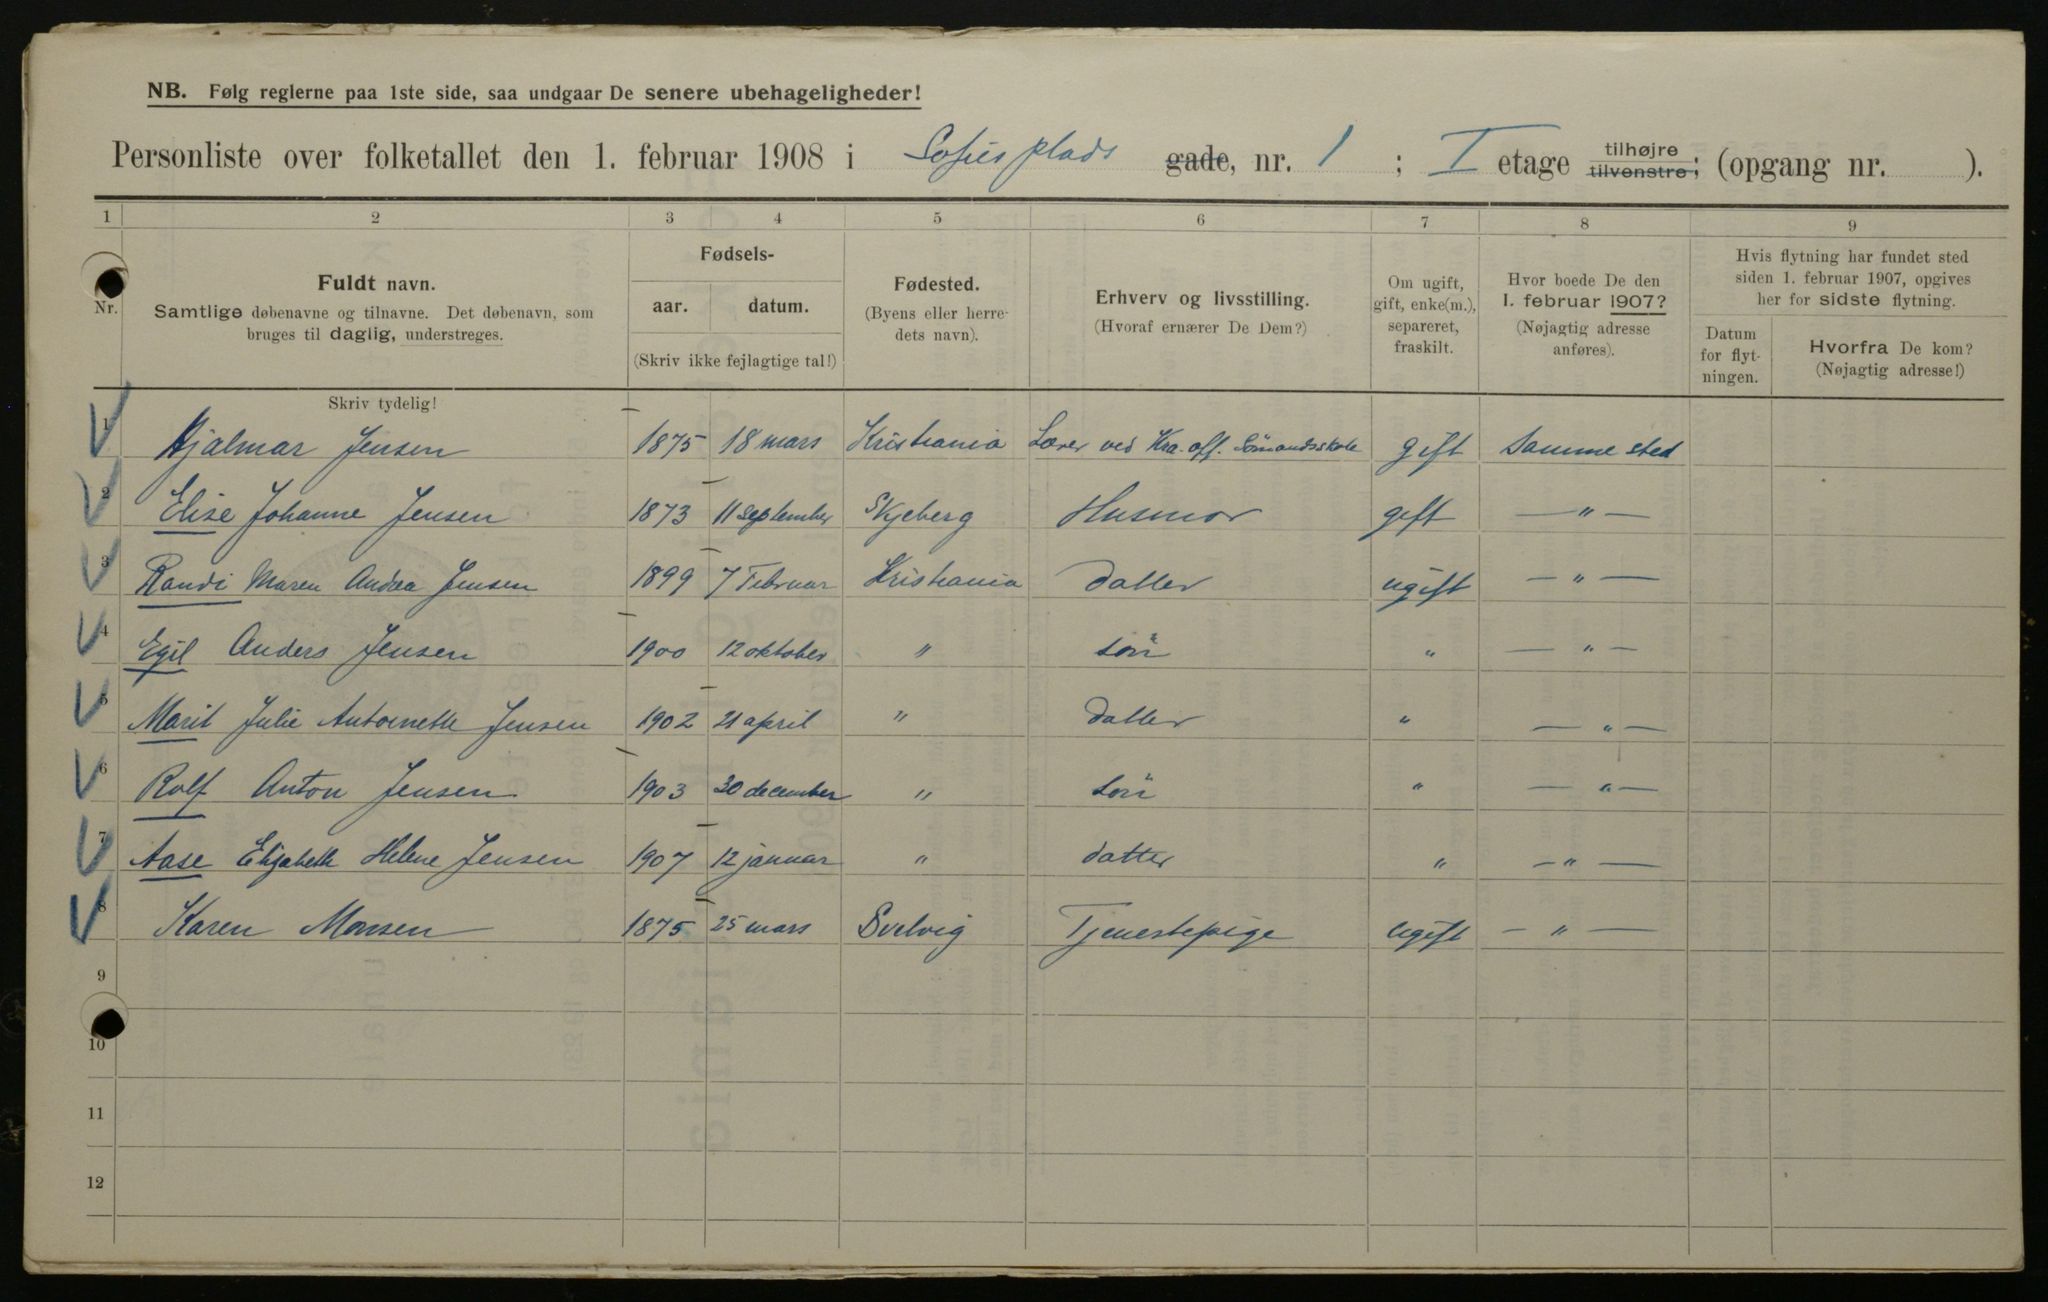 NB. Følg reglerne paa 1ste side, saa undgaar De senere ubehageligheder!
Personliste over folketallet den 1. februar 1908 i Sofies plads gade, nr. 1 ; I etage tilhøjre tilvenstre; (opgang nr. ).
1 2 3 4 5 6 7 8 9
Nr.
Fuldt navn.
Samtlige døbenavne og tilnavne. Det døbenavn, som
bruges til daglig, understreges.
Fødsels-
aar. datum.
(Skriv ikke fejlagtige tal!)
Fødested.
(Byens eller herre-
dets navn).
Erhverv og livsstilling.
(Hvoraf ernærer De Dem?)
Om ugift,
gift, enke(m.),
separeret,
fraskilt.
Hvor boede De den
1. februar 1907?
(Nøjagtig adresse
anføres).
Hvis flytning har fundet sted
siden 1. februar 1907, opgives
her for sidste flytning.
Datum
for flyt-
ningen.
Hvorfra De kom?
(Nøjagtig adresse!)
Skriv tydelig!
1 Hjalmar Jensen 1875 18 mars Kristiania Lærer ved Kra. off. Sömandsskole gift Samme sted
2 Elise Johanne Jensen 1873 11 september Skjeberg Husmor gift — " —
3 Randi Maren Andrea Jensen 1899 7 Februar Kristiania datter ugift — " —
4 Egil Anders Jensen 1900 12 oktober " sön " — " —
5 Marit Julie Antoinette Jensen 1902 21 april " datter " — " —
6 Rolf Anton Jensen 1903 30 december " sön " — " —
7 Aase Elisabeth Helene Jensen 1907 12 januar " datter " — " —
8 Karen Monsen 1875 25 mars Svelvig Tjenestepige ugift — " —
9
10
11
12